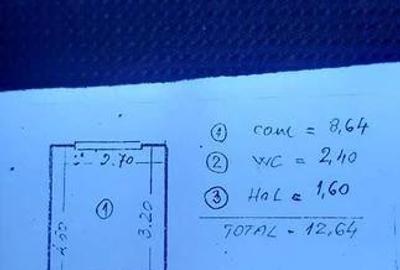 ① cam = 8,64
② WC = 2,40
③ HOL = 1,60
TOTAL = 12,64
2.70
①
3.20